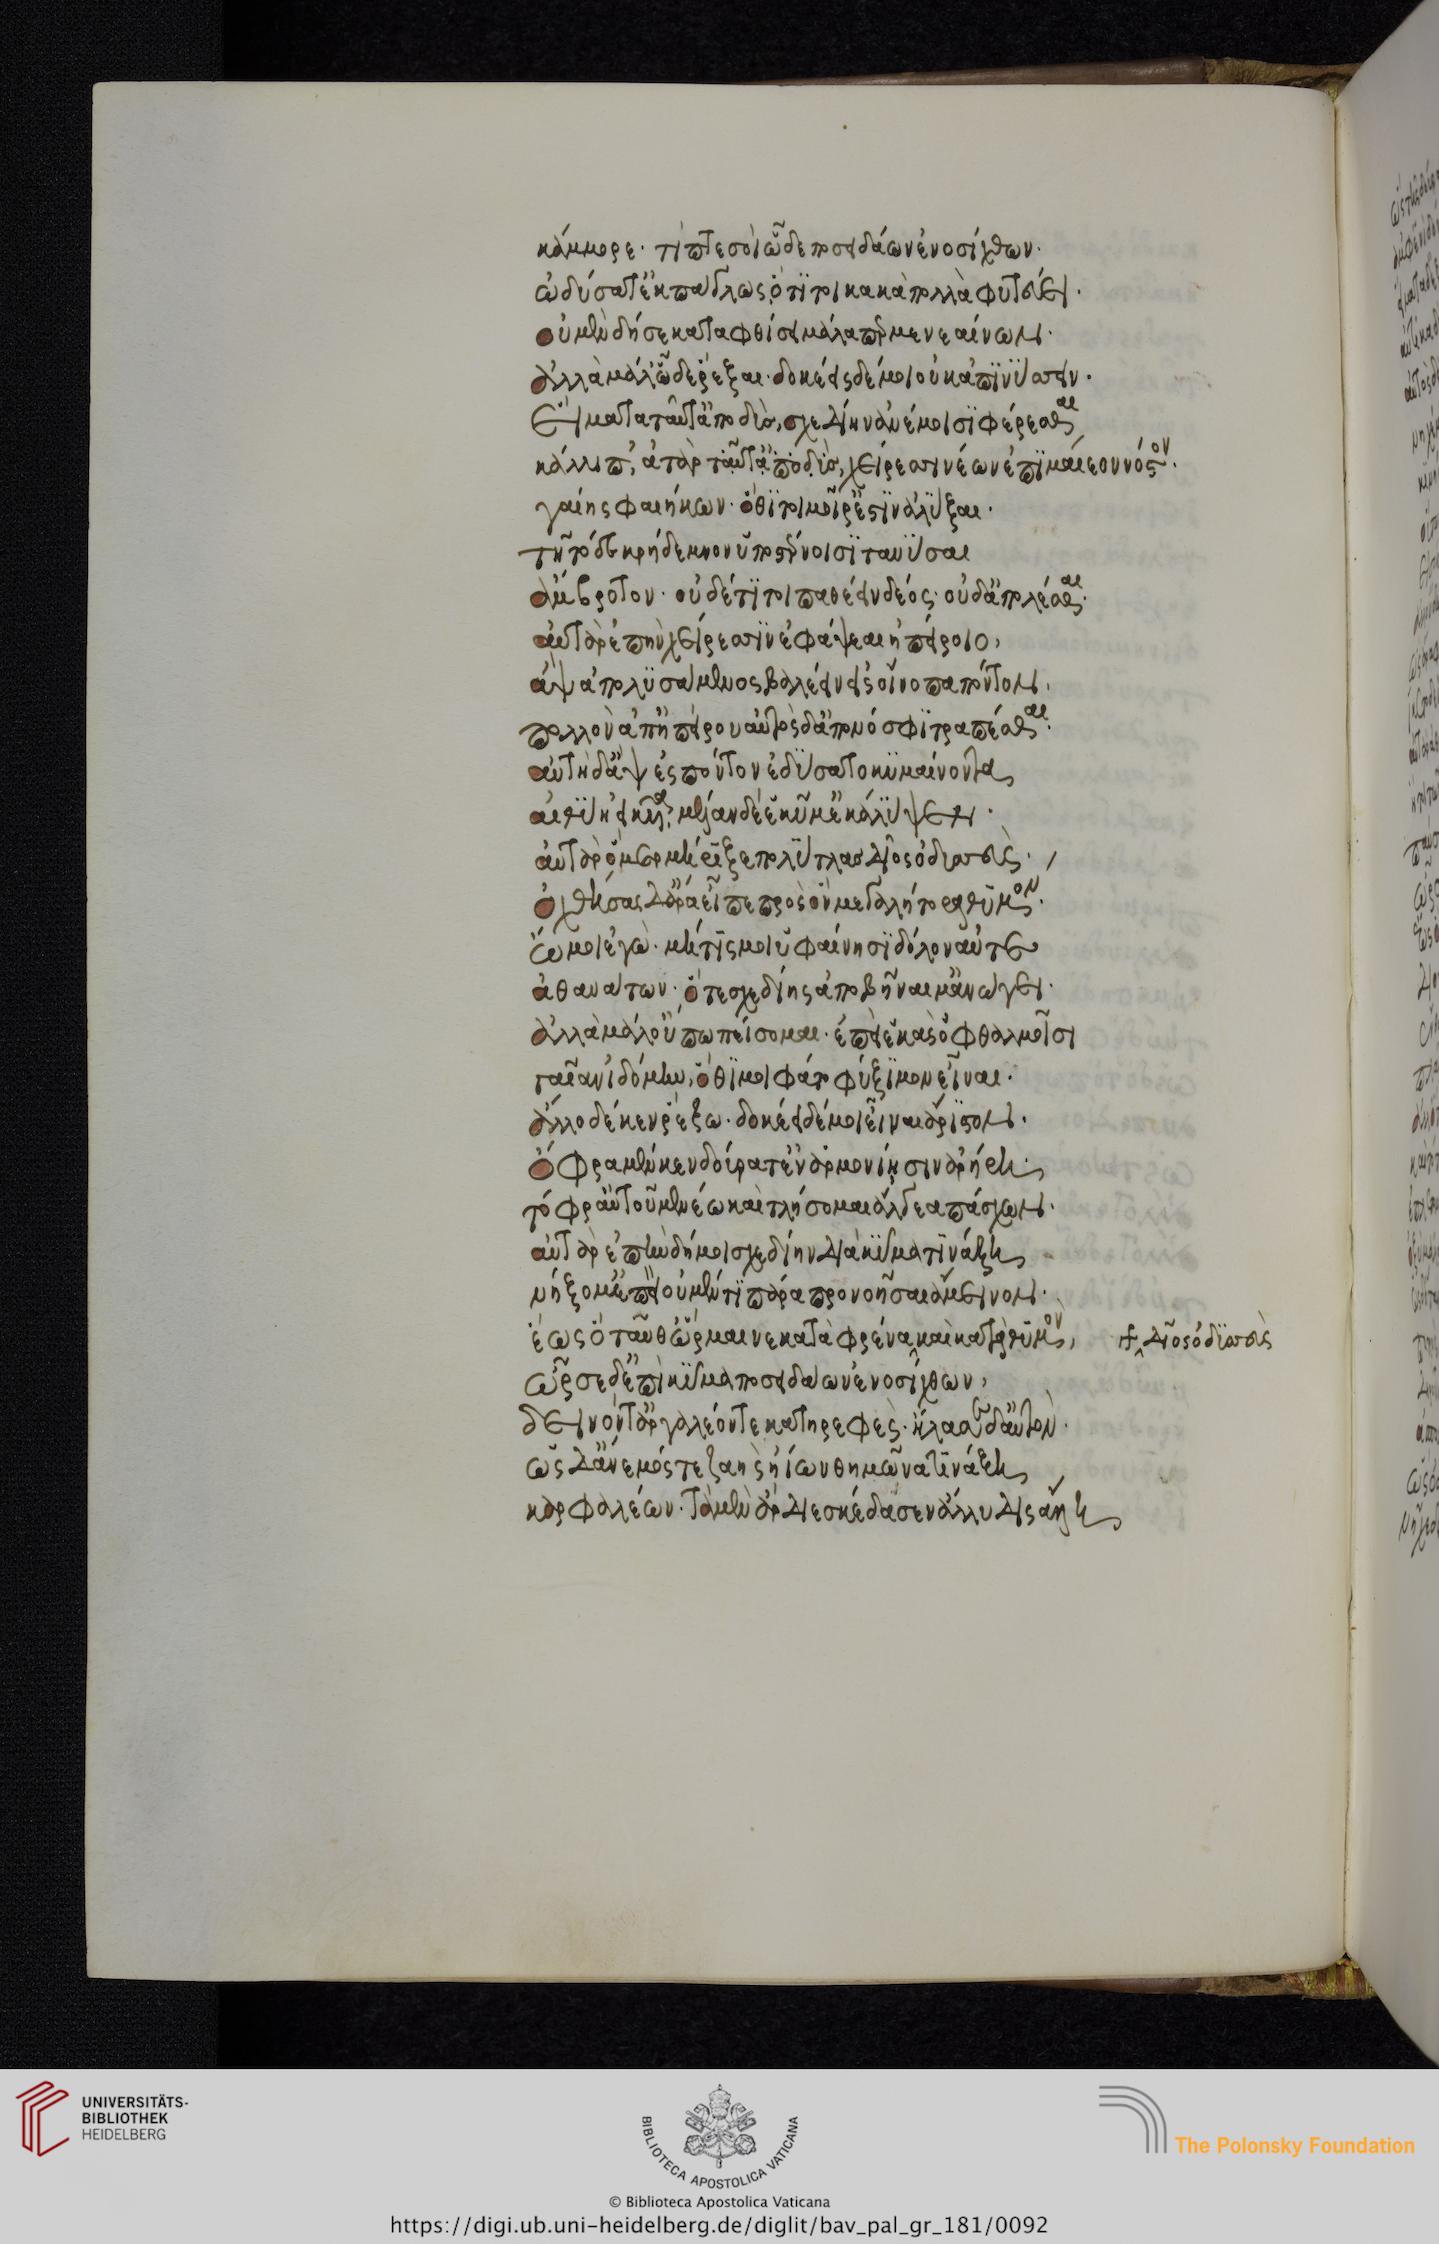 κάμμορε· τί πτέ σοι ὧδε ποσειδάων ἐνοσίχθων·
ὠδύσατ' ἐκπάγλως ὅτι τοι κακὰ πολλὰ φυτεύει·
οὐ μὲν δή σε καταφθίσει μάλα περ μενεαίνων·
ἀλλὰ μάλ' ὧδε ῥέξαι· δοκέεις δέ μοι οὐκ ἀπινύσσειν·
εἵματα ταῦτ' ἀποδὺς, σχεδίην ἀνέμοισι φέρεσθαι
κάλλιπ', ἀτὰρ χείρεσσι νέων ἐπιμαίεο νόστον·
γαίης φαιήκων· ὅθι τοι μοῖρ' ἐστὶν ἀλύξαι·
τῆ τόδε κρήδεμνον ὑπὸ στέρνοισι τανύσαι
ἄμβροτον· οὐδέ τί τοι παθέειν δέος· οὐδ' ἀπολέσθαι·
αὐτὰρ ἐπὴν χείρεσσιν ἐφάψεαι ἠπείροιο,
ἂψ ἀπολυσάμενος βαλέειν εἰς οἴνοπα πόντον·
πολλὸν ἀπ' ἠπείρου αὐτὸς δ' ἀπονόσφι τραπέσθαι·
αὐτὴ δ' ἂψ ἐς πόντον ἐδύσατο κυμαίνοντα
αἰθυίῃ εἰκυῖα, μέλαν δέ ἑ κῦμ' ἐκάλυψεν·
αὐτὰρ ὁ μερμήριξε πολύτλας δῖος ὀδυσσεὺς·
ὀχθήσας δ' ἄρα εἶπε πρὸς ὃν μεγαλήτορα θυμὸν·
ὤμοι ἐγὼ· μή τίς μοι ὑφαίνησι δόλον αὖτε
ἀθανάτων· ὅτε σχεδίης ἀποβῆναί μ' ἀνώγει·
ἀλλὰ μάλ' οὔπω πείσομαι· ἐπεὶ ἑκὰς ὀφθαλμοῖσι
γαῖαν ἰδόμην, ὅθι μοι φάτο φύξιμον εἶναι·
ἀλλ' ὧδέ κεν ῥέξω· δοκέει δέ μοι εἶναι ἄριστον·
ὄφρα μέν κεν δούρατ' ἐν ἁρμονίῃσιν ἀρήρῃ·
τόφρ' αὐτοῦ μενέω καὶ τλήσομαι ἄλγεα πάσχων·
αὐτὰρ ἐπὴν δή μοι σχεδίην διὰ κῦμα τινάξῃ
νήξομ' ἐπεὶ οὐ μέν τι πάρα προνοῆσαι ἄμεινον·
ἕως ὁ ταῦθ' ὥρμαινε κατὰ φρένα καὶ κατὰ θυμὸν, δῖος ὀδυσσεὺς
ὦρσε δ' ἐπὶ κῦμα ποσειδάων ἐνοσίχθων,
δεινόν τ' ἀργαλέον τε κατηρεφὲς· ἤλασε δ' αὐτὸν·
ὡς δ' ἄνεμος ζαὴς ἠΐων θημῶνα τινάξῃ
καρφαλέων· τὰ μὲν ἄρ διεσκέδασεν ἄλλυδις ἄλλῃ
UNIVERSITÄTS-
BIBLIOTHEK
HEIDELBERG
BIBLIOTECA APOSTOLICA VATICANA
The Polonsky Foundation
© Biblioteca Apostolica Vaticana
https://digi.ub.uni-heidelberg.de/diglit/bav_pal_gr_181/0092